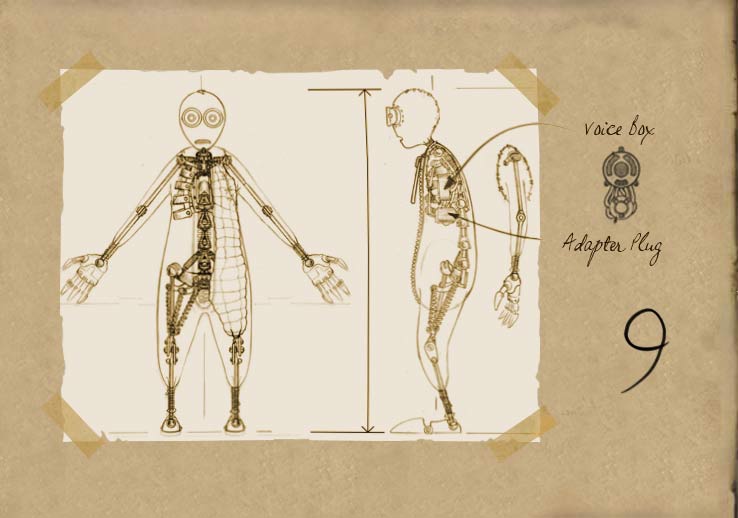 Voice Box
Adapter Plug
9